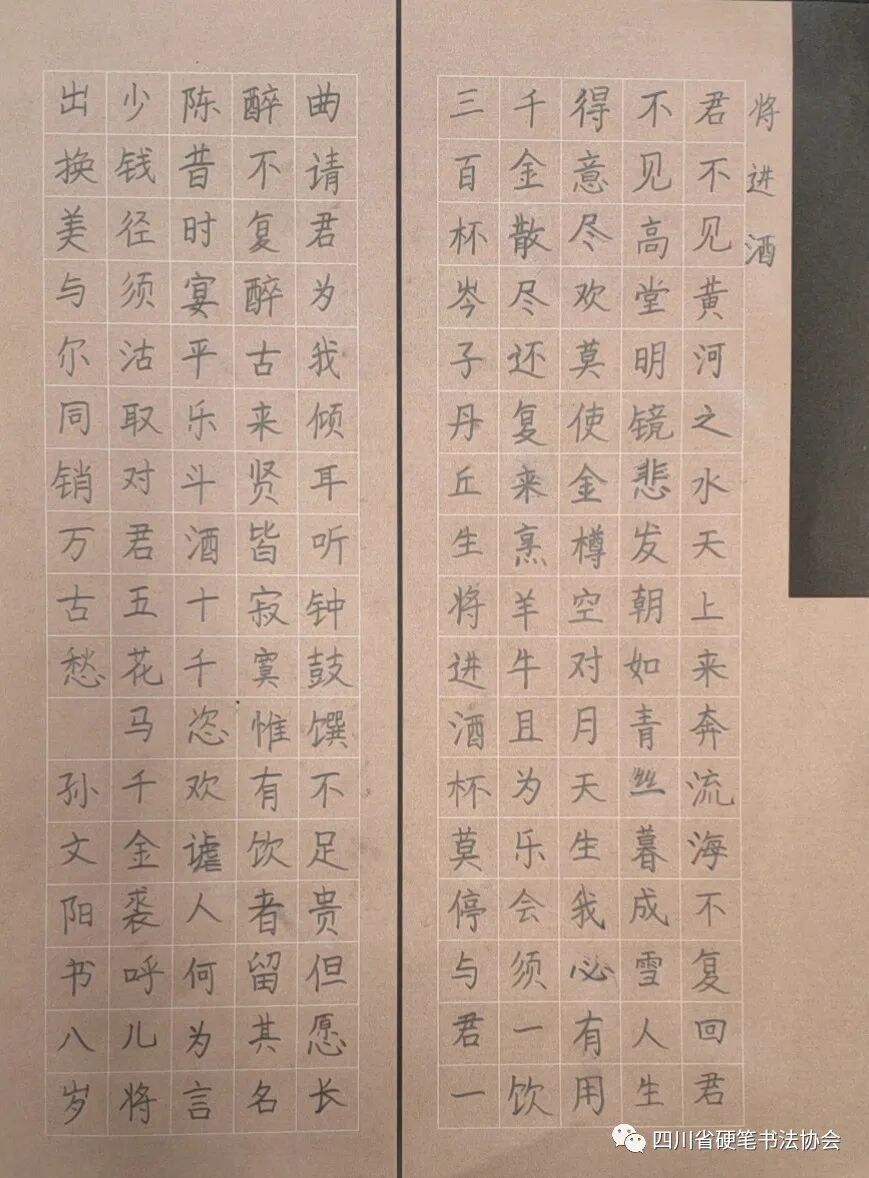 将进酒
君不见黄河之水天上来奔流海不复回君
不见高堂明镜悲发朝如青丝暮成雪人生
得意尽欢莫使金樽空对月天生我必有用
千金散尽还复来烹羊牛且为乐会须一饮
三百杯岑子丹丘生将进酒杯莫停与君一
曲请君为我倾耳听钟鼓馔不足贵但愿长
醉不复醉古来贤皆寂寞惟有饮者留其名
陈昔时宴平乐斗酒十千恣欢谑人何为言
少钱径须沽取对君五花马千金裘呼儿将
出换美与尔同销万古愁 孙文阳书八岁
四川省硬笔书法协会